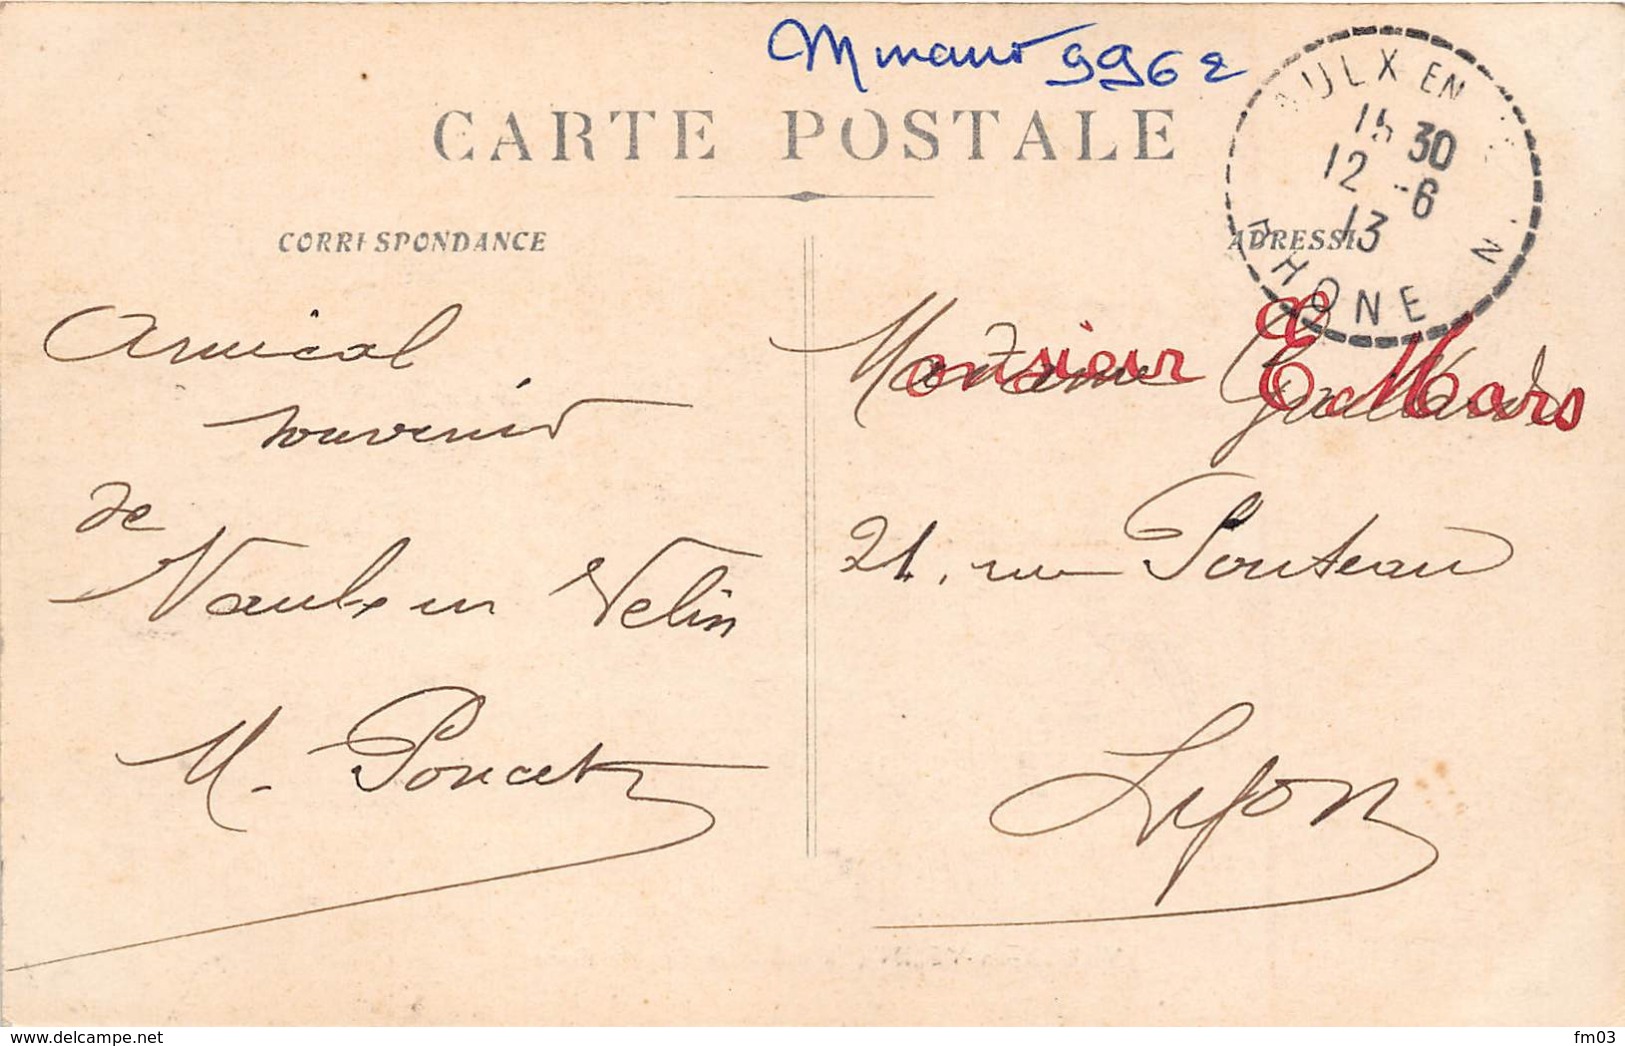 9962
CARTE POSTALE
CORRESPONDANCE
ADRESSE
AULX EN
15 30
12 -6
13
RHONE
Amical
souvenir
de
Vaulx en Velin
M. Poncet
Monsieur E. Mars
21, rue Pouteau
Lyon
www.delcampe.net
fm03